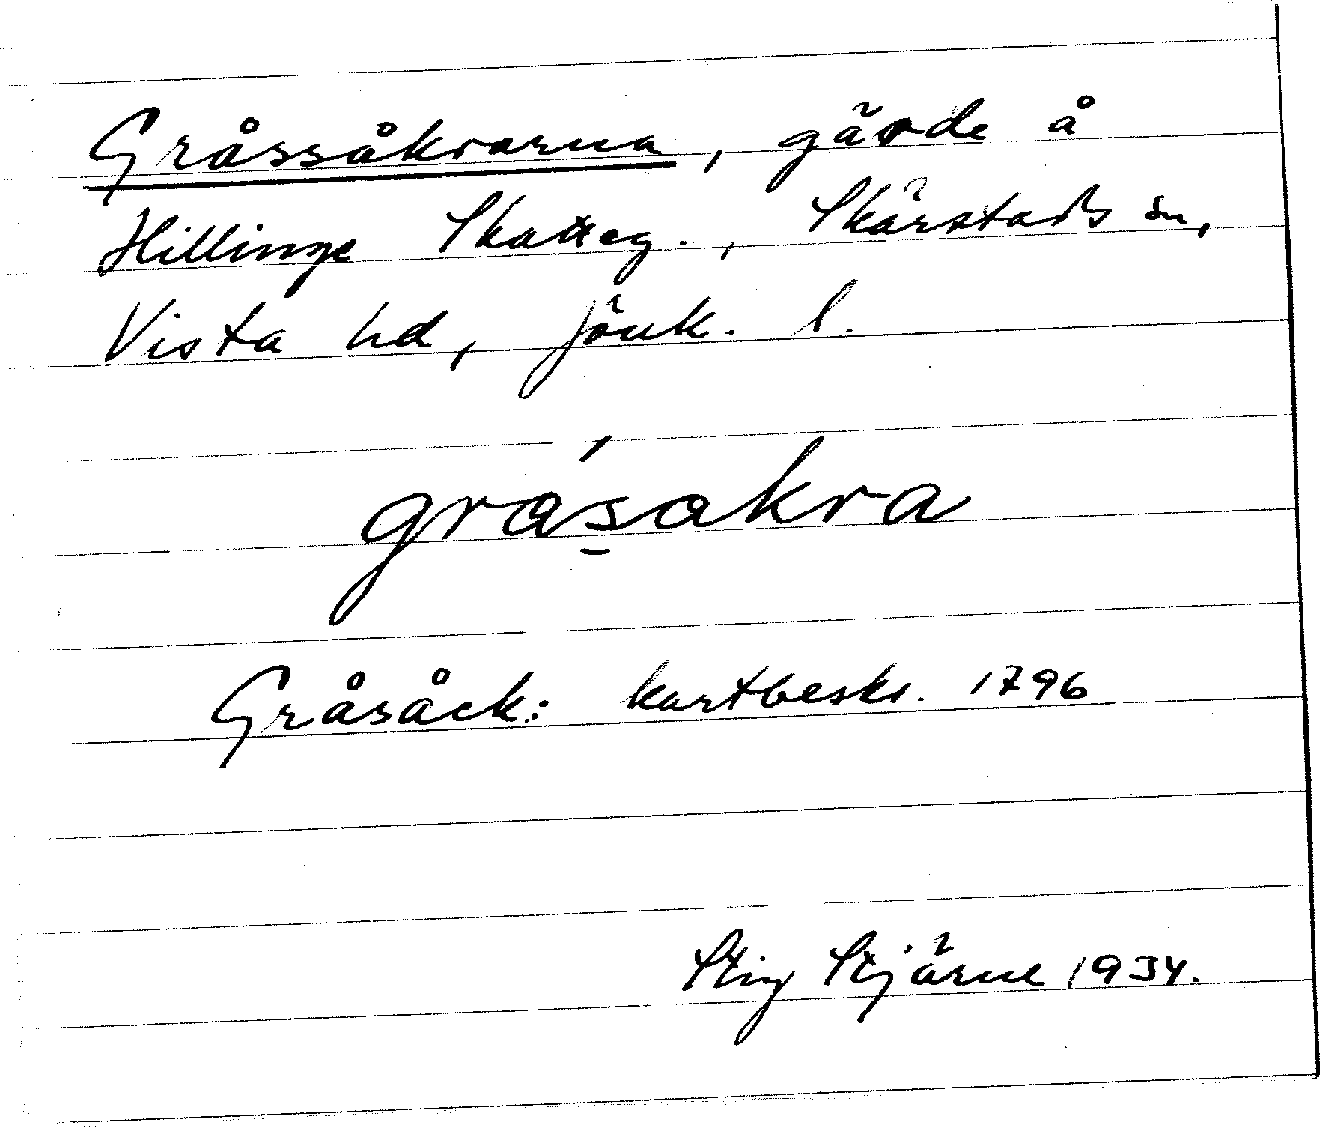 Gråssåkrarna, gärde å
Hillinge Skatteg., Skärstads sn,
Vista hd, Jönk. l.
grás̱akra
Gråsåck: kartbeskr. 1796
Stig Stjärne 1934.